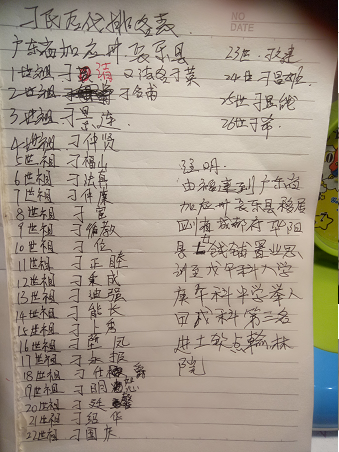 NO
DATE
刁氏历代排名表
广东省加应州长乐县
1世祖 刁清 又法名刁英
2世祖 刁合甫
3世祖 刁景连
4世祖 刁仲贤
5世祖 刁福山
6世祖 刁法真
7世祖 刁仲廉
8世祖 刁宣
9世祖 刁循教
10世祖 刁位
11世祖 刁正睦
12世祖 刁秉成
13世祖 刁迪强
14世祖 刁能长
15世祖 刁上秀
16世祖 刁凤
17世祖 刁振
18世祖 刁仕爵
19世祖 刁明忠
20世祖 刁廷
21世祖 刁绍华
22世祖 刁国庆
23世
24世刁昌
25世刁显
26世
注明:
由福建到广东省
加应州长乐县移居
四川省成都府
县七钱铺置业思
科入学
庚午科中学举人
甲戌科第三名
进士钦点翰林
院